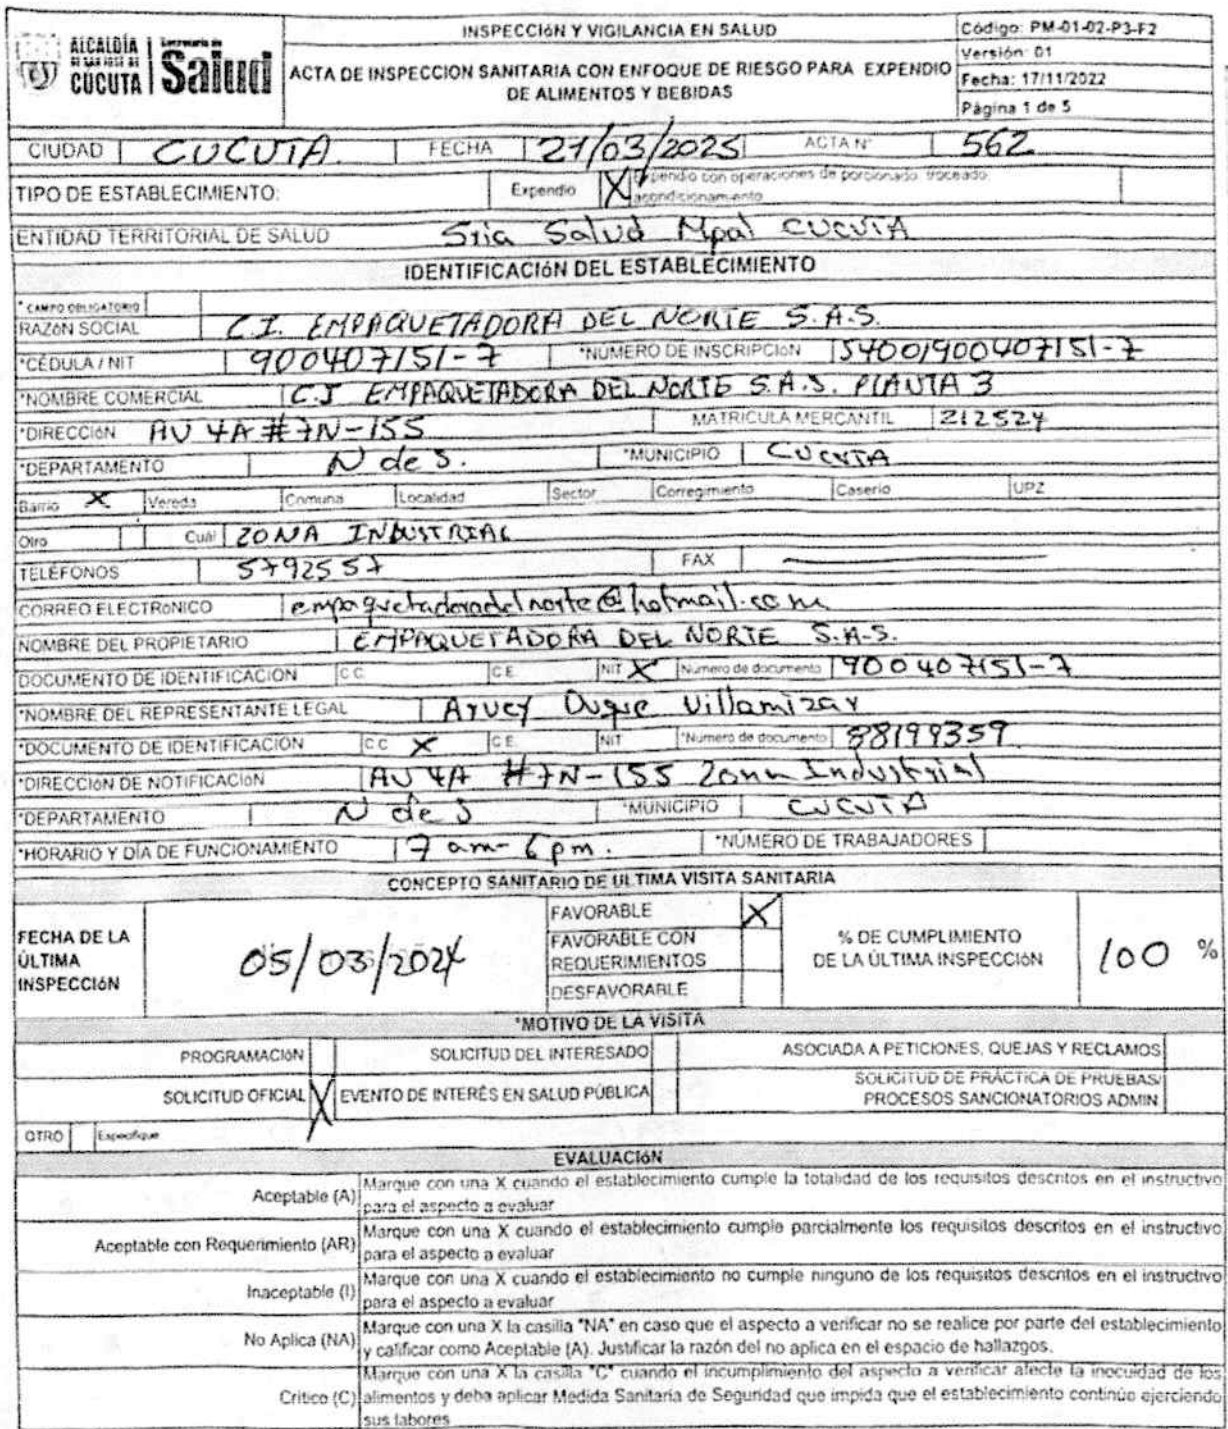 ALCALDÍA DE SAN JOSÉ DE CÚCUTA Secretaría de Salud
INSPECCIóN Y VIGILANCIA EN SALUD
ACTA DE INSPECCION SANITARIA CON ENFOQUE DE RIESGO PARA EXPENDIO DE ALIMENTOS Y BEBIDAS
Código: PM-01-02-P3-F2
Versión: 01
Fecha: 17/11/2022
Página 1 de 5
CIUDAD CUCUTA. FECHA 21/03/2025 ACTA N° 562
TIPO DE ESTABLECIMIENTO: Expendio X Expendio con operaciones de porcionado, troceado, acondicionamiento
ENTIDAD TERRITORIAL DE SALUD Sria Salud Mpal CUCUTA
IDENTIFICACIóN DEL ESTABLECIMIENTO
* CAMPO OBLIGATORIO
RAZóN SOCIAL C.I. EMPAQUETADORA DEL NORTE S.A.S.
*CÉDULA / NIT 900407151-7 *NÚMERO DE INSCRIPCIóN 54001900407151-7
*NOMBRE COMERCIAL C.I EMPAQUETADORA DEL NORTE S.A.S. PLANTA 3
*DIRECCIóN AV 4A #7N-155 MATRICULA MERCANTIL 212527
*DEPARTAMENTO N de S. *MUNICIPIO CUCUTA
Barrio X Vereda Comuna Localidad Sector Corregimiento Caserio UPZ
Otro Cuál ZONA INDUSTRIAL
TELÉFONOS 5792557 FAX
CORREO ELECTRóNICO empaquetadoradelnorte@hotmail.com
NOMBRE DEL PROPIETARIO EMPAQUETADORA DEL NORTE S.A.S.
DOCUMENTO DE IDENTIFICACIÓN C.C. C.E. NIT X Número de documento 900407151-7
*NOMBRE DEL REPRESENTANTE LEGAL Aruey Duque Villamizar
*DOCUMENTO DE IDENTIFICACIÓN C.C. X C.E. NIT *Número de documento 88199359
*DIRECCIóN DE NOTIFICACIóN AV 4A #7N-155 Zona Industrial
*DEPARTAMENTO N de S *MUNICIPIO CUCUTA
*HORARIO Y DÍA DE FUNCIONAMIENTO 7 am- 6 pm. *NÚMERO DE TRABAJADORES
CONCEPTO SANITARIO DE ULTIMA VISITA SANITARIA
FECHA DE LA ÚLTIMA INSPECCIóN 05/03/2024
FAVORABLE X
FAVORABLE CON REQUERIMIENTOS
DESFAVORABLE
% DE CUMPLIMIENTO DE LA ÚLTIMA INSPECCIóN 100 %
*MOTIVO DE LA VISITA
PROGRAMACIóN SOLICITUD DEL INTERESADO ASOCIADA A PETICIONES, QUEJAS Y RECLAMOS
SOLICITUD OFICIAL X EVENTO DE INTERÉS EN SALUD PÚBLICA SOLICITUD DE PRÁCTICA DE PRUEBAS/ PROCESOS SANCIONATORIOS ADMIN
OTRO Especifique
EVALUACIóN
Aceptable (A) Marque con una X cuando el establecimiento cumple la totalidad de los requisitos descritos en el instructivo
para el aspecto a evaluar
Aceptable con Requerimiento (AR) Marque con una X cuando el establecimiento cumple parcialmente los requisitos descritos en el instructivo
para el aspecto a evaluar
Inaceptable (I) Marque con una X cuando el establecimiento no cumple ninguno de los requisitos descritos en el instructivo
para el aspecto a evaluar
No Aplica (NA) Marque con una X la casilla "NA" en caso que el aspecto a verificar no se realice por parte del establecimiento
y calificar como Aceptable (A). Justificar la razón del no aplica en el espacio de hallazgos.
Critico (C) Marque con una X la casilla "C" cuando el incumplimiento del aspecto a verificar afecte la inocuidad de los
alimentos y deba aplicar Medida Sanitaria de Seguridad que impida que el establecimiento continúe ejerciendo
sus labores